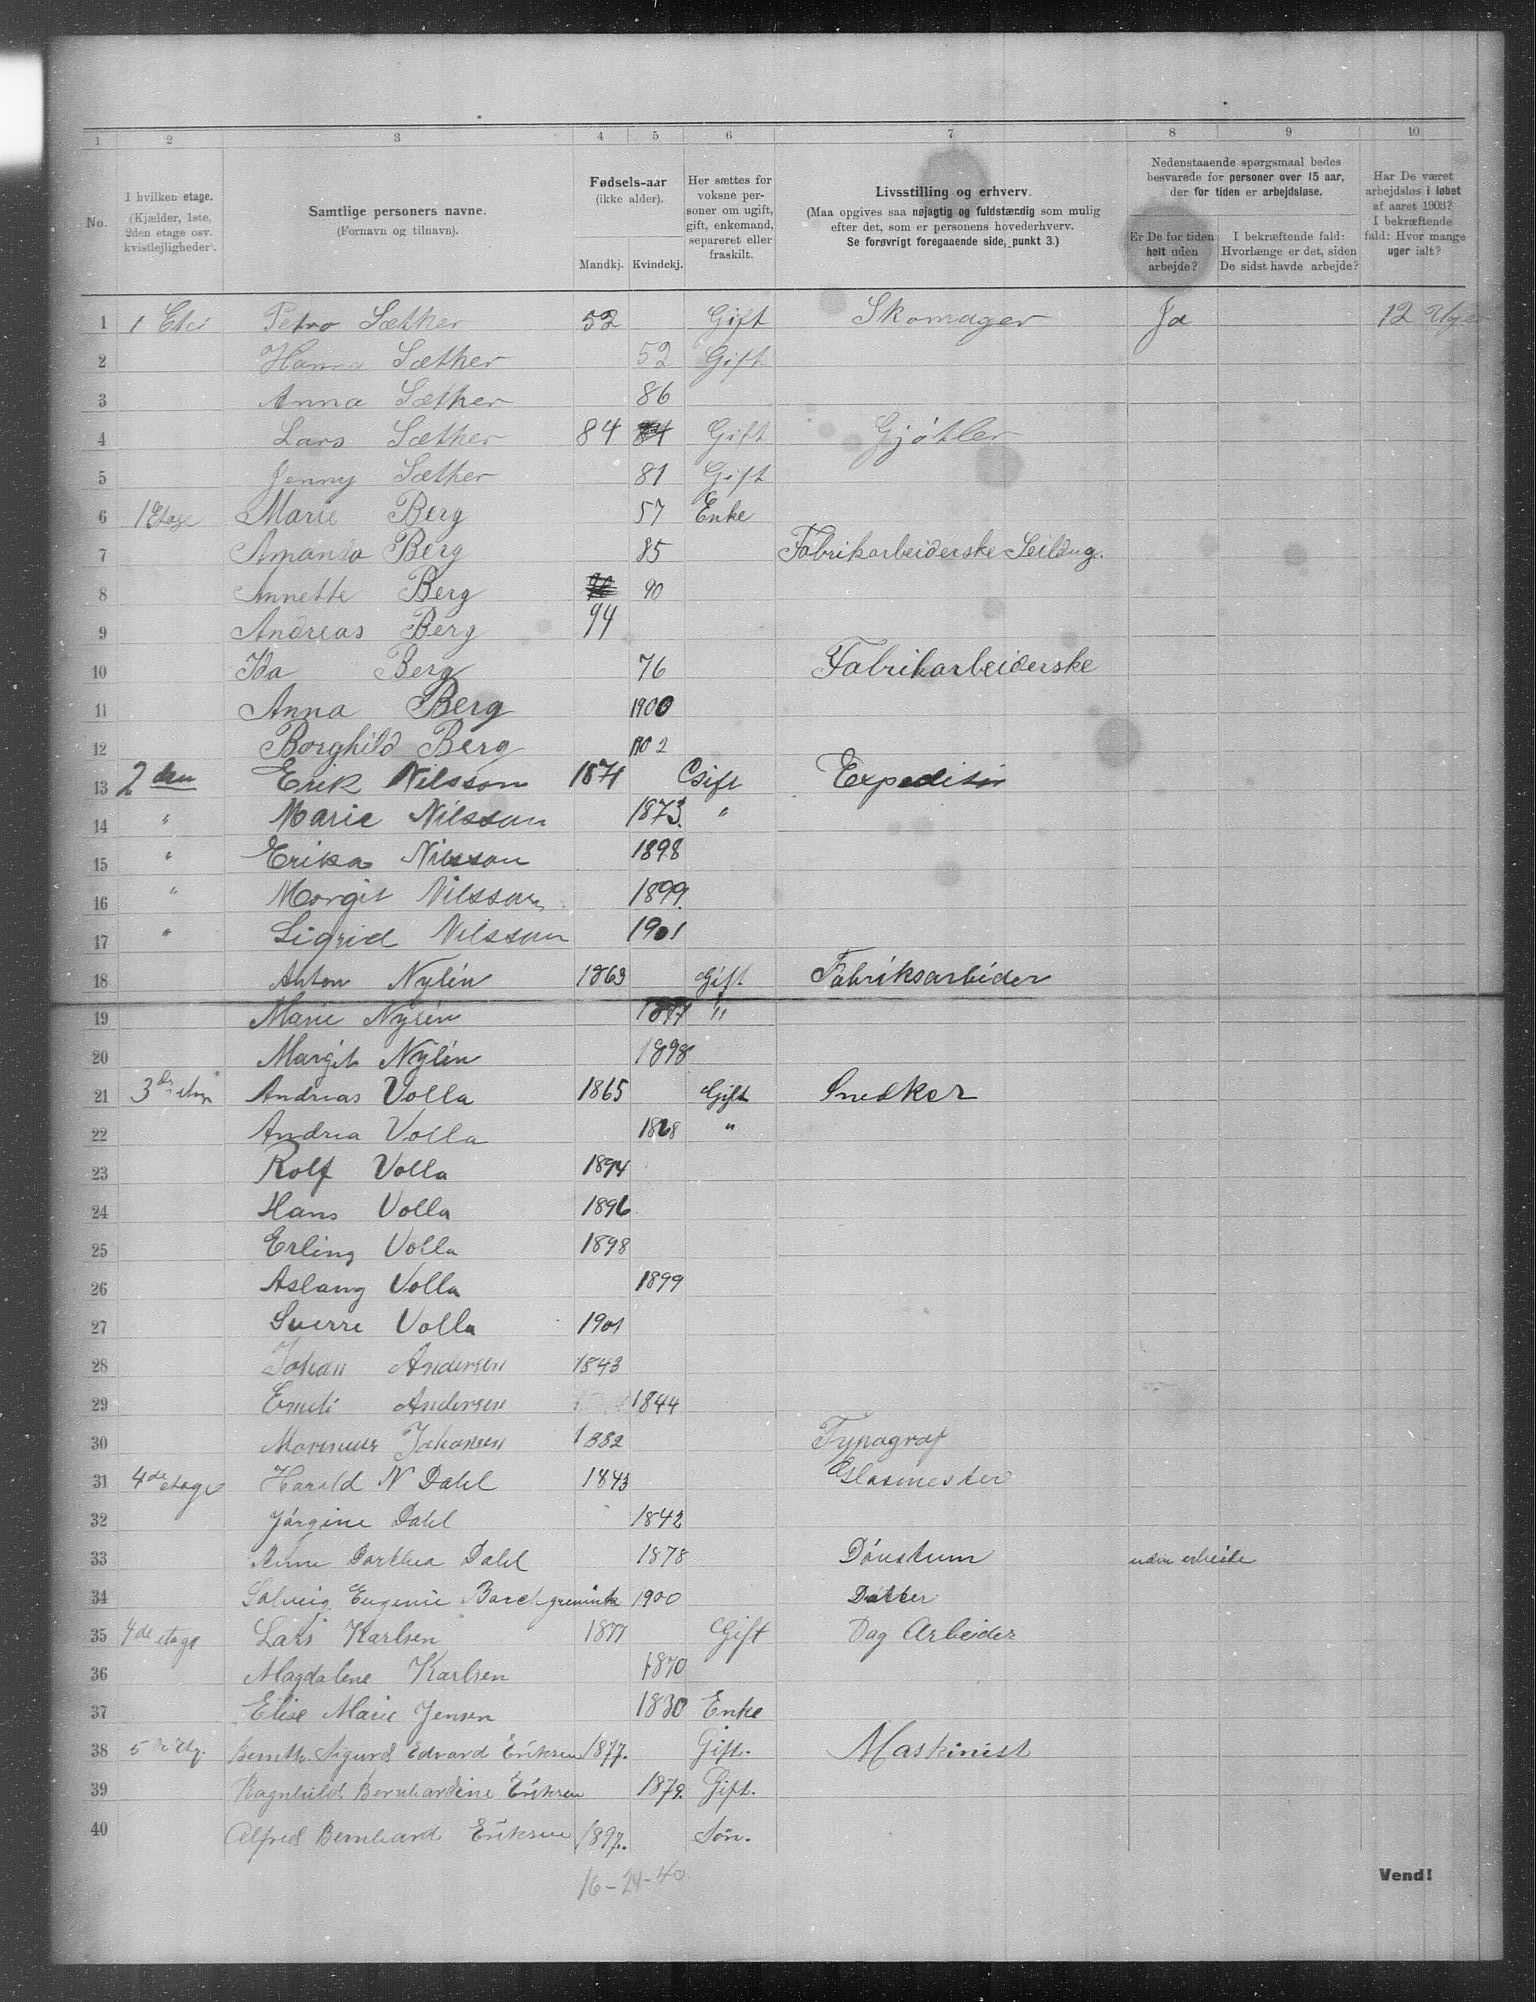 1 2 3 4 5 6 7 8 9 10
No.
I hvilken etage.
(Kjælder, 1ste,
2den etage osv.
kvistlejligheder).
Samtlige personers navne.
(Fornavn og tilnavn).
Fødsels-aar
(ikke alder).
Mandkj. Kvindekj.
Her sættes for
voksne per-
soner om ugift,
gift, enkemand,
separeret eller
fraskilt.
Livsstilling og erhverv.
(Maa opgives saa nøjagtig og fuldstærdig som mulig
efter det, som er personens hovederhverv.
Se forøvrigt foregaaende side, punkt 3.)
Nedenstaaende spørgsmaal bedes
besvarede for personer over 15 aar,
der for tiden er arbejdsløse.
Er De for tiden
helt uden
arbejde?
I bekræftende fald:
Hvorlænge er det, siden
De sidst havde arbejde?
Har De været
arbejdsløs i løbet
af aaret 1903?
I bekræftende
fald: Hvor mange
uger ialt?
1 1 Petro Sæther 52 Gift Skomager Ja 12 Uger
2 Hanna Sæther 52 Gift
3 Anna Sæther 86
4 Lars Sæther 84 84 Gift Gjøtler
5 Jenny Sæther 81 Gift
6 1 Etage Marie Berg 57 Enke
7 Amanda Berg 85 Fabrikarbeiderske Seildug.
8 Annette Berg 90 90
9 Andreas Berg 94
10 Ida Berg 76 Fabrikarbeiderske
11 Anna Berg 1900
12 Borghild Berg 1902
13 2 den Erik Nilsson 1871 Gift Expeditør
14 " Marie Nilsson 1873. "
15 " Erika Nilsson 1898
16 " Morgit Nilsson 1899.
17 " Sigrid Nilsson 1901
18 Anton Nylén 1863 Gift Fabriksarbeider
19 Marie Nylén 1877 "
20 Margit Nylén 1898
21 3 Andreas Volla 1865 Gift Snedker
22 Andrea Volla 1868 "
23 Rolf Volla 1894
24 Hans Volla 1896
25 Erling Volla 1898
26 Aslaug Volla 1899
27 Sverre Volla 1901
28 Johan Andersen 1843
29 Emeli Andersen 1844
30 Marinius Johansen 1882 Typograf
31 4de etage Harald N Dahl 1843 Glasmester
32 Jørgine Dahl 1842
33 Anne Dorthea Dahl 1878 uden arbeide
34 Solveig Eugenie Borchgrevink 1900 Datter
35 4de etage Lars Karlsen 1877 Gift Dag Arbeider
36 Magdalene Karlsen 1870
37 Elise Marie Jensen 1830 Enke
38 5 Sigurd Edvard Eriksen 1877. Gift. Maskinist
39 Ragnhild Bernhardine Eriksen 1879. Gift.
40 Alfred Bernhard Eriksen 1897. Søn.
16-24-40
Vend!